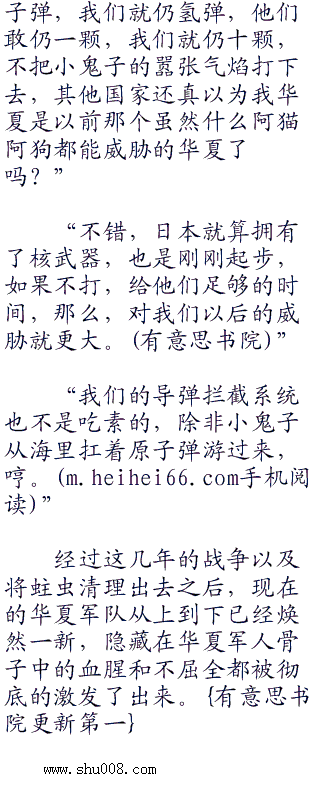 子弹，我们就仍氢弹，他们
敢仍一颗，我们就仍十颗，
不把小鬼子的嚣张气焰打下
去，其他国家还真以为我华
夏是以前那个虽然什么阿猫
阿狗都能威胁的华夏了
吗？”
“不错，日本就算拥有
了核武器，也是刚刚起步，
如果不打，给他们足够的时
间，那么，对我们以后的威
胁就更大。(有意思书院)”
“我们的导弹拦截系统
也不是吃素的，除非小鬼子
从海里扛着原子弹游过来，
哼。(m.heihei66.com手机阅
读)”
经过这几年的战争以及
将蛀虫清理出去之后，现在
的华夏军队从上到下已经焕
然一新，隐藏在华夏军人骨
子中的血腥和不屈全都被彻
底的激发了出来。{有意思书
院更新第一}
www.shu008.com